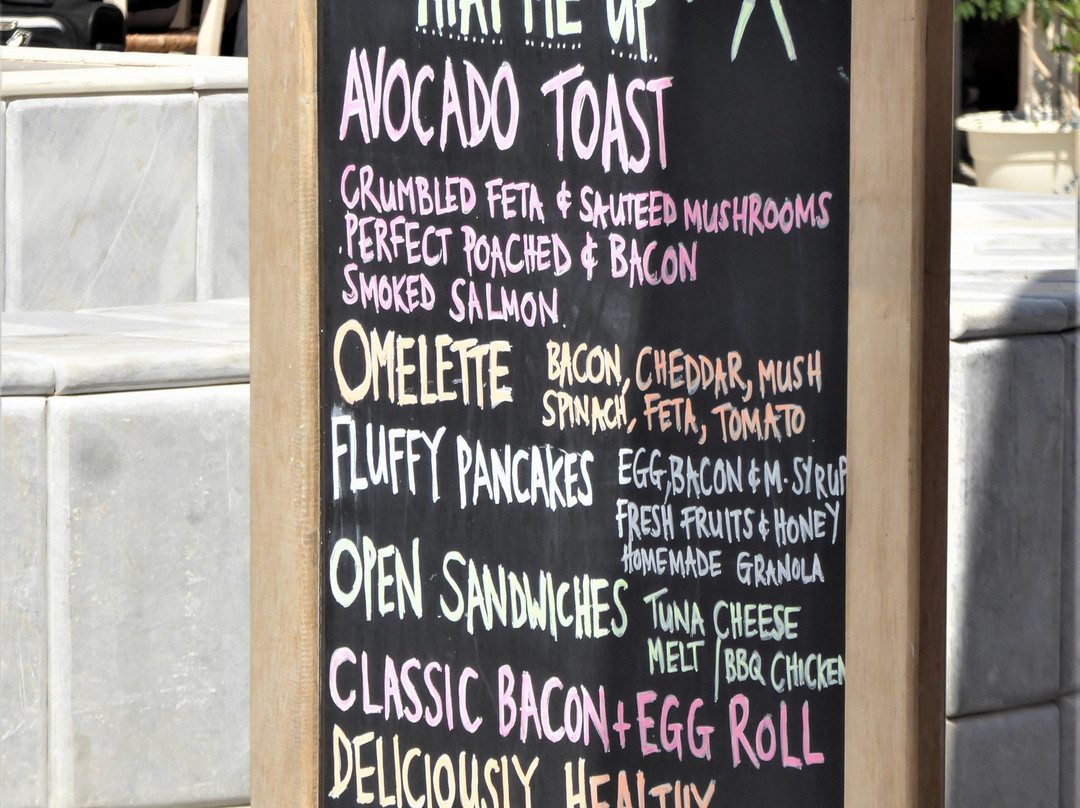 ME UP
AVOCADO TOAST
CRUMBLED FETA & SAUTEED MUSHROOMS
PERFECT POACHED & BACON
SMOKED SALMON
OMELETTE BACON, CHEDDAR, MUSH
SPINACH, FETA, TOMATO
FLUFFY PANCAKES EGG, BACON & M. SYRUP
FRESH FRUITS & HONEY
HOMEMADE GRANOLA
OPEN SANDWICHES TUNA CHEESE
MELT / BBQ CHICKEN
CLASSIC BACON + EGG ROLL
DELICIOUSLY HEALTHY